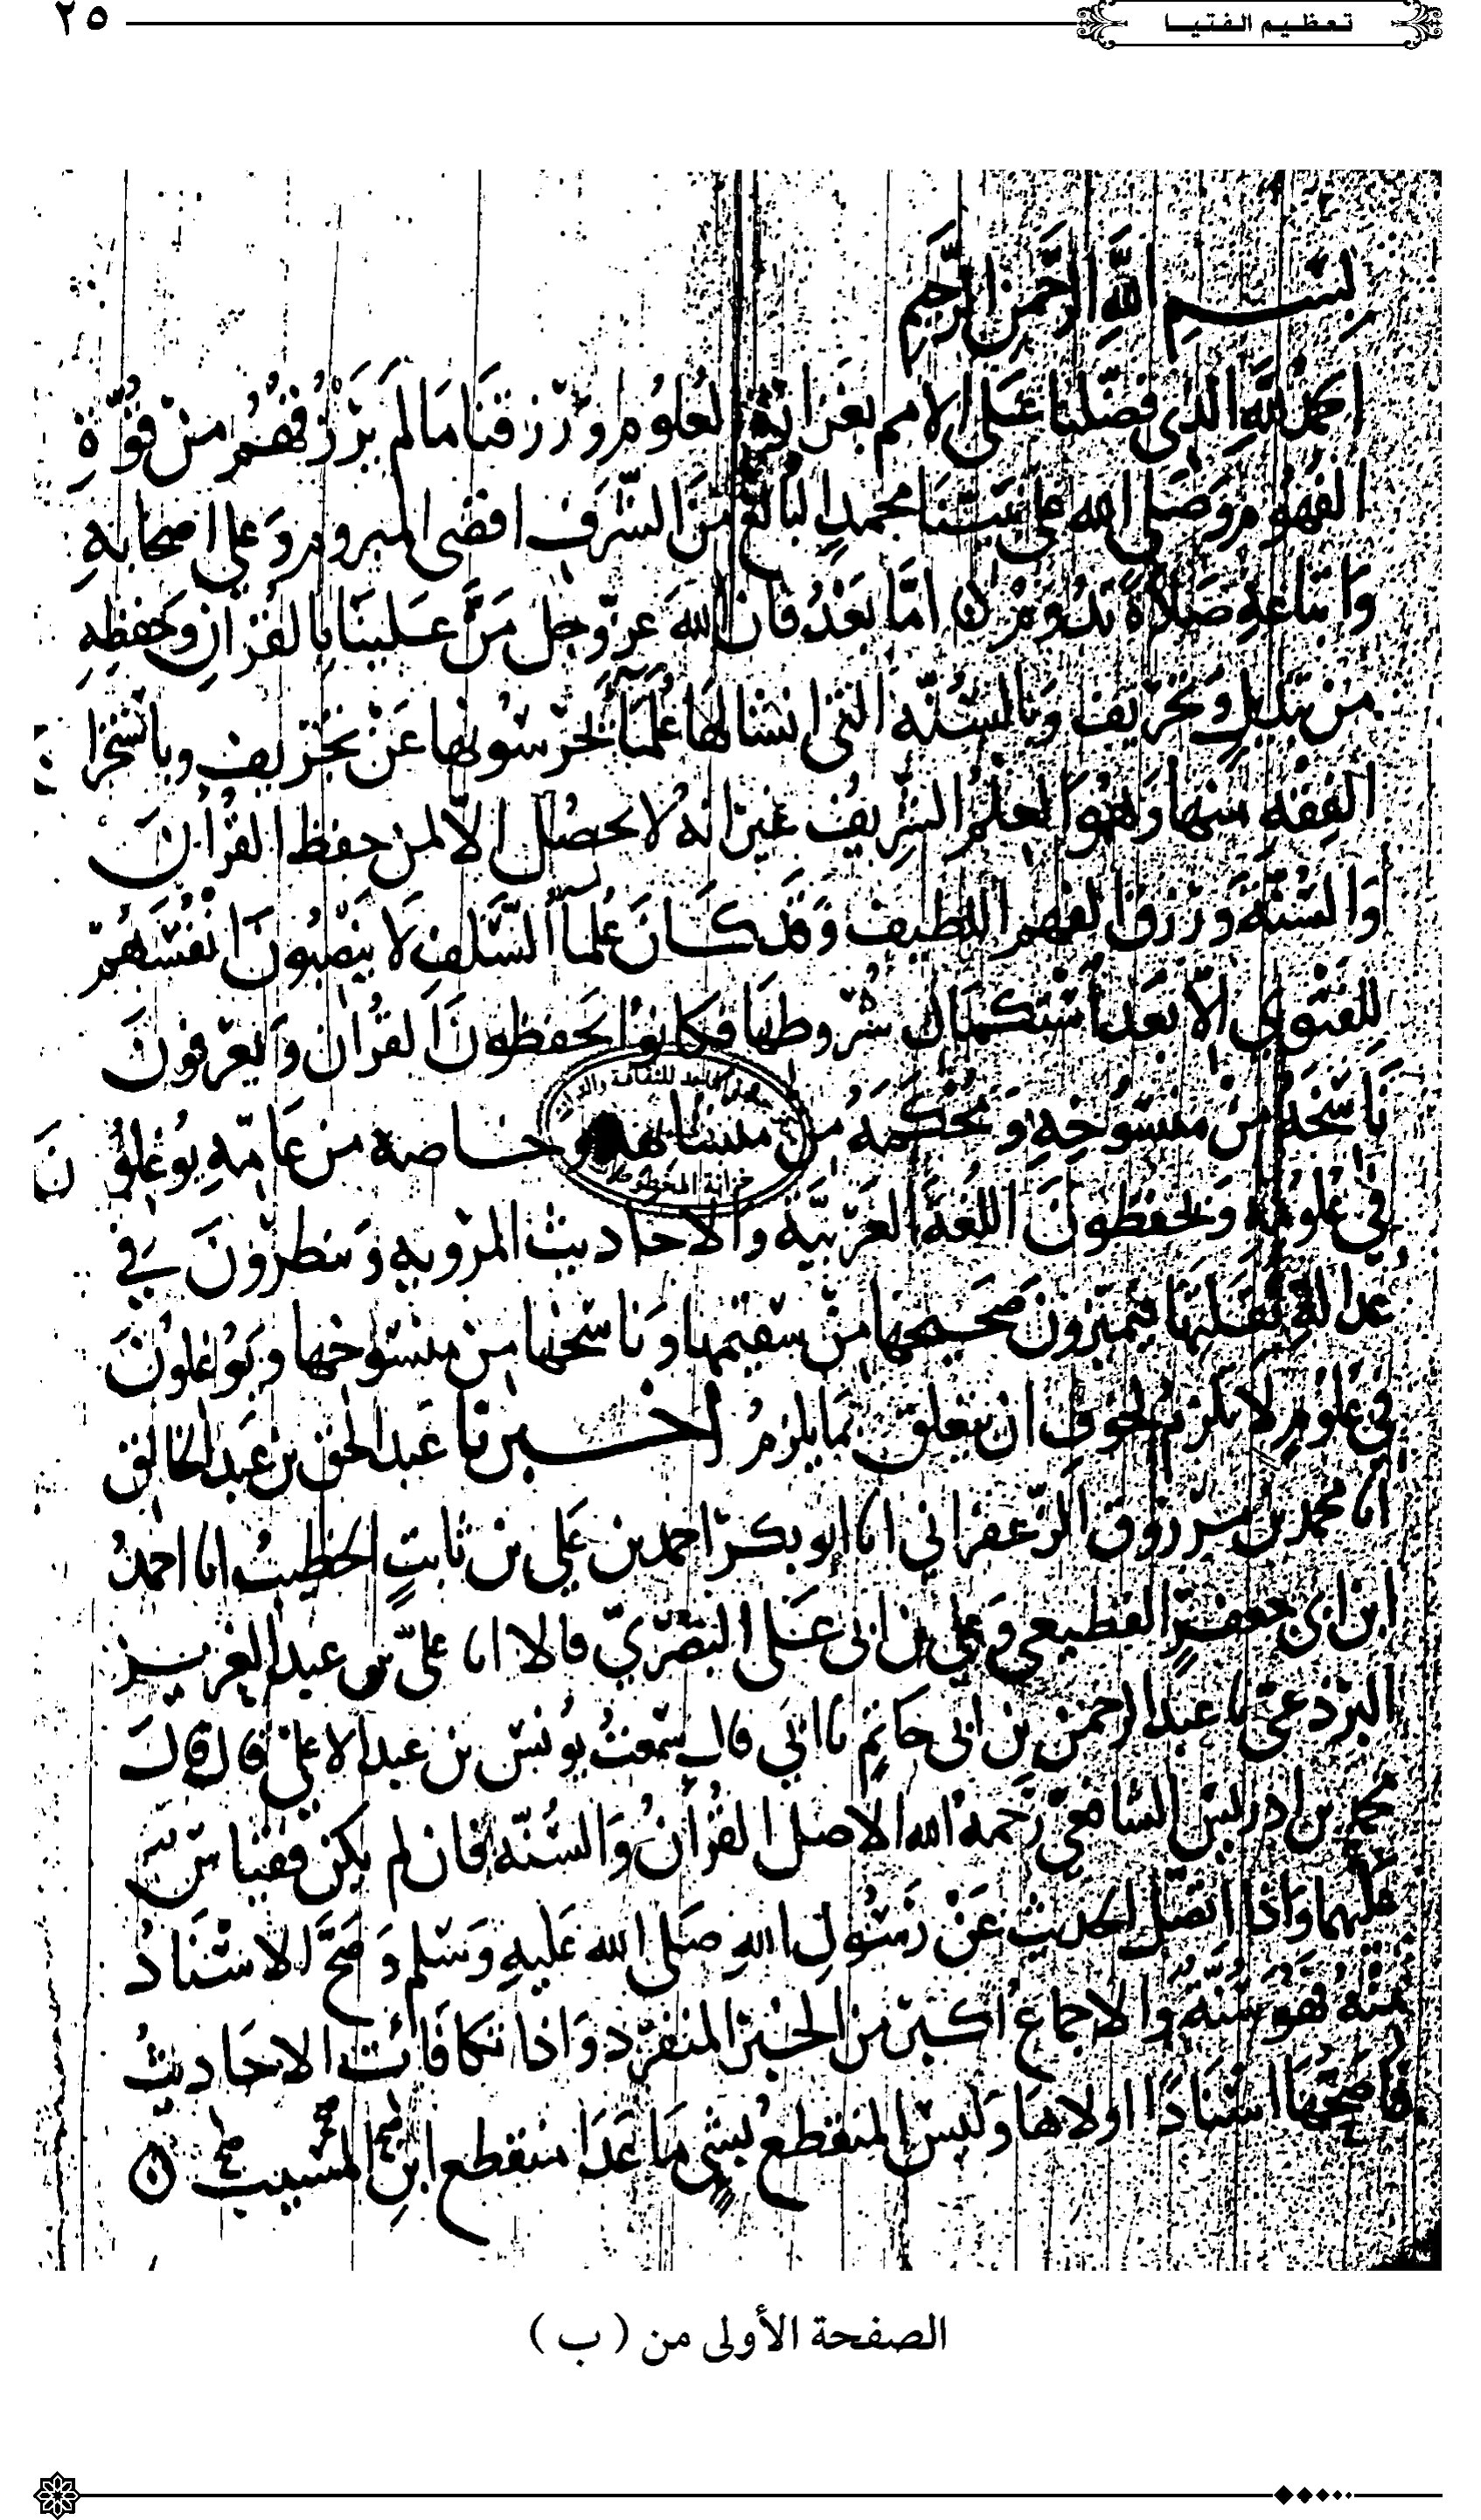 تعظيم الفتيا
٢٥
بسم الله الرحمن الرحيم
الحمد لله الذي فضلنا على الامم بغزائة العلوم ورزقنا ما لم يرزقهم من قوة
الفهوم وصلى الله على نبينا محمد البالغ من الشرف اقصى المبروم وعلى اصحابه
واتباعه صلاة تدوم اما بعد فان الله عز وجل من علينا بالقران وحفظه
من تبديل وتحريف وبالسنة التي انشا لها علماً لحرسونها عن تحريف وباستخرا
الفقه منها وهو العلم الشريف غير انه لا يحصل الا لمن حفظ القرآن
والسنة ورزق الفهم اللطيف وقد كان علماء السلف لا ينصبون انفسهم
للفتوى الا بعد استكمال شروطها فكانوا يحفظون القرآن ويعرفون
ناسخه من منسوخه ومحكمه من متشابهه وخاصه من عامه يوغلون
في علومه ويحفظون اللغة العربية والاحاديث المروية وينظرون في
عدالة نقلتها فيميزون صحيحها من سقيمها وناسخها من منسوخها ويوغلون
في علوم لا يلزم لخوف ان يتعلق بما يلزم اخبرنا عبد الحق بن عبد الخالق
انا محمد بن مرزوق الزعفراني انا ابو بكر احمد بن علي بن ثابت الخطيب انا احمد
ابن ابي جعفر القطيعي وعلي بن ابي علي البصري قالا انا علي بن عبد العزيز
البرذعي نا عبد الرحمن بن ابي حاتم نا ابي قال سمعت يونس بن عبد الاعلى قال قال
محمد بن ادريس الشافعي رحمه الله الاصل القرآن والسنة فان لم يكن فقياس
عليهما واذا اتصل الحديث عن رسول الله صلى الله عليه وسلم وصح الاسناد
منه فهو سنة والاجماع اكبر من الخبر المنفرد واذا تكافأت الاحاديث
فاصحها اسنادا اولاها وليس المنقطع بشي ما عدا منقطع ابن المسيب
خزانة المخطوطات
الصفحة الأولى من ( ب )